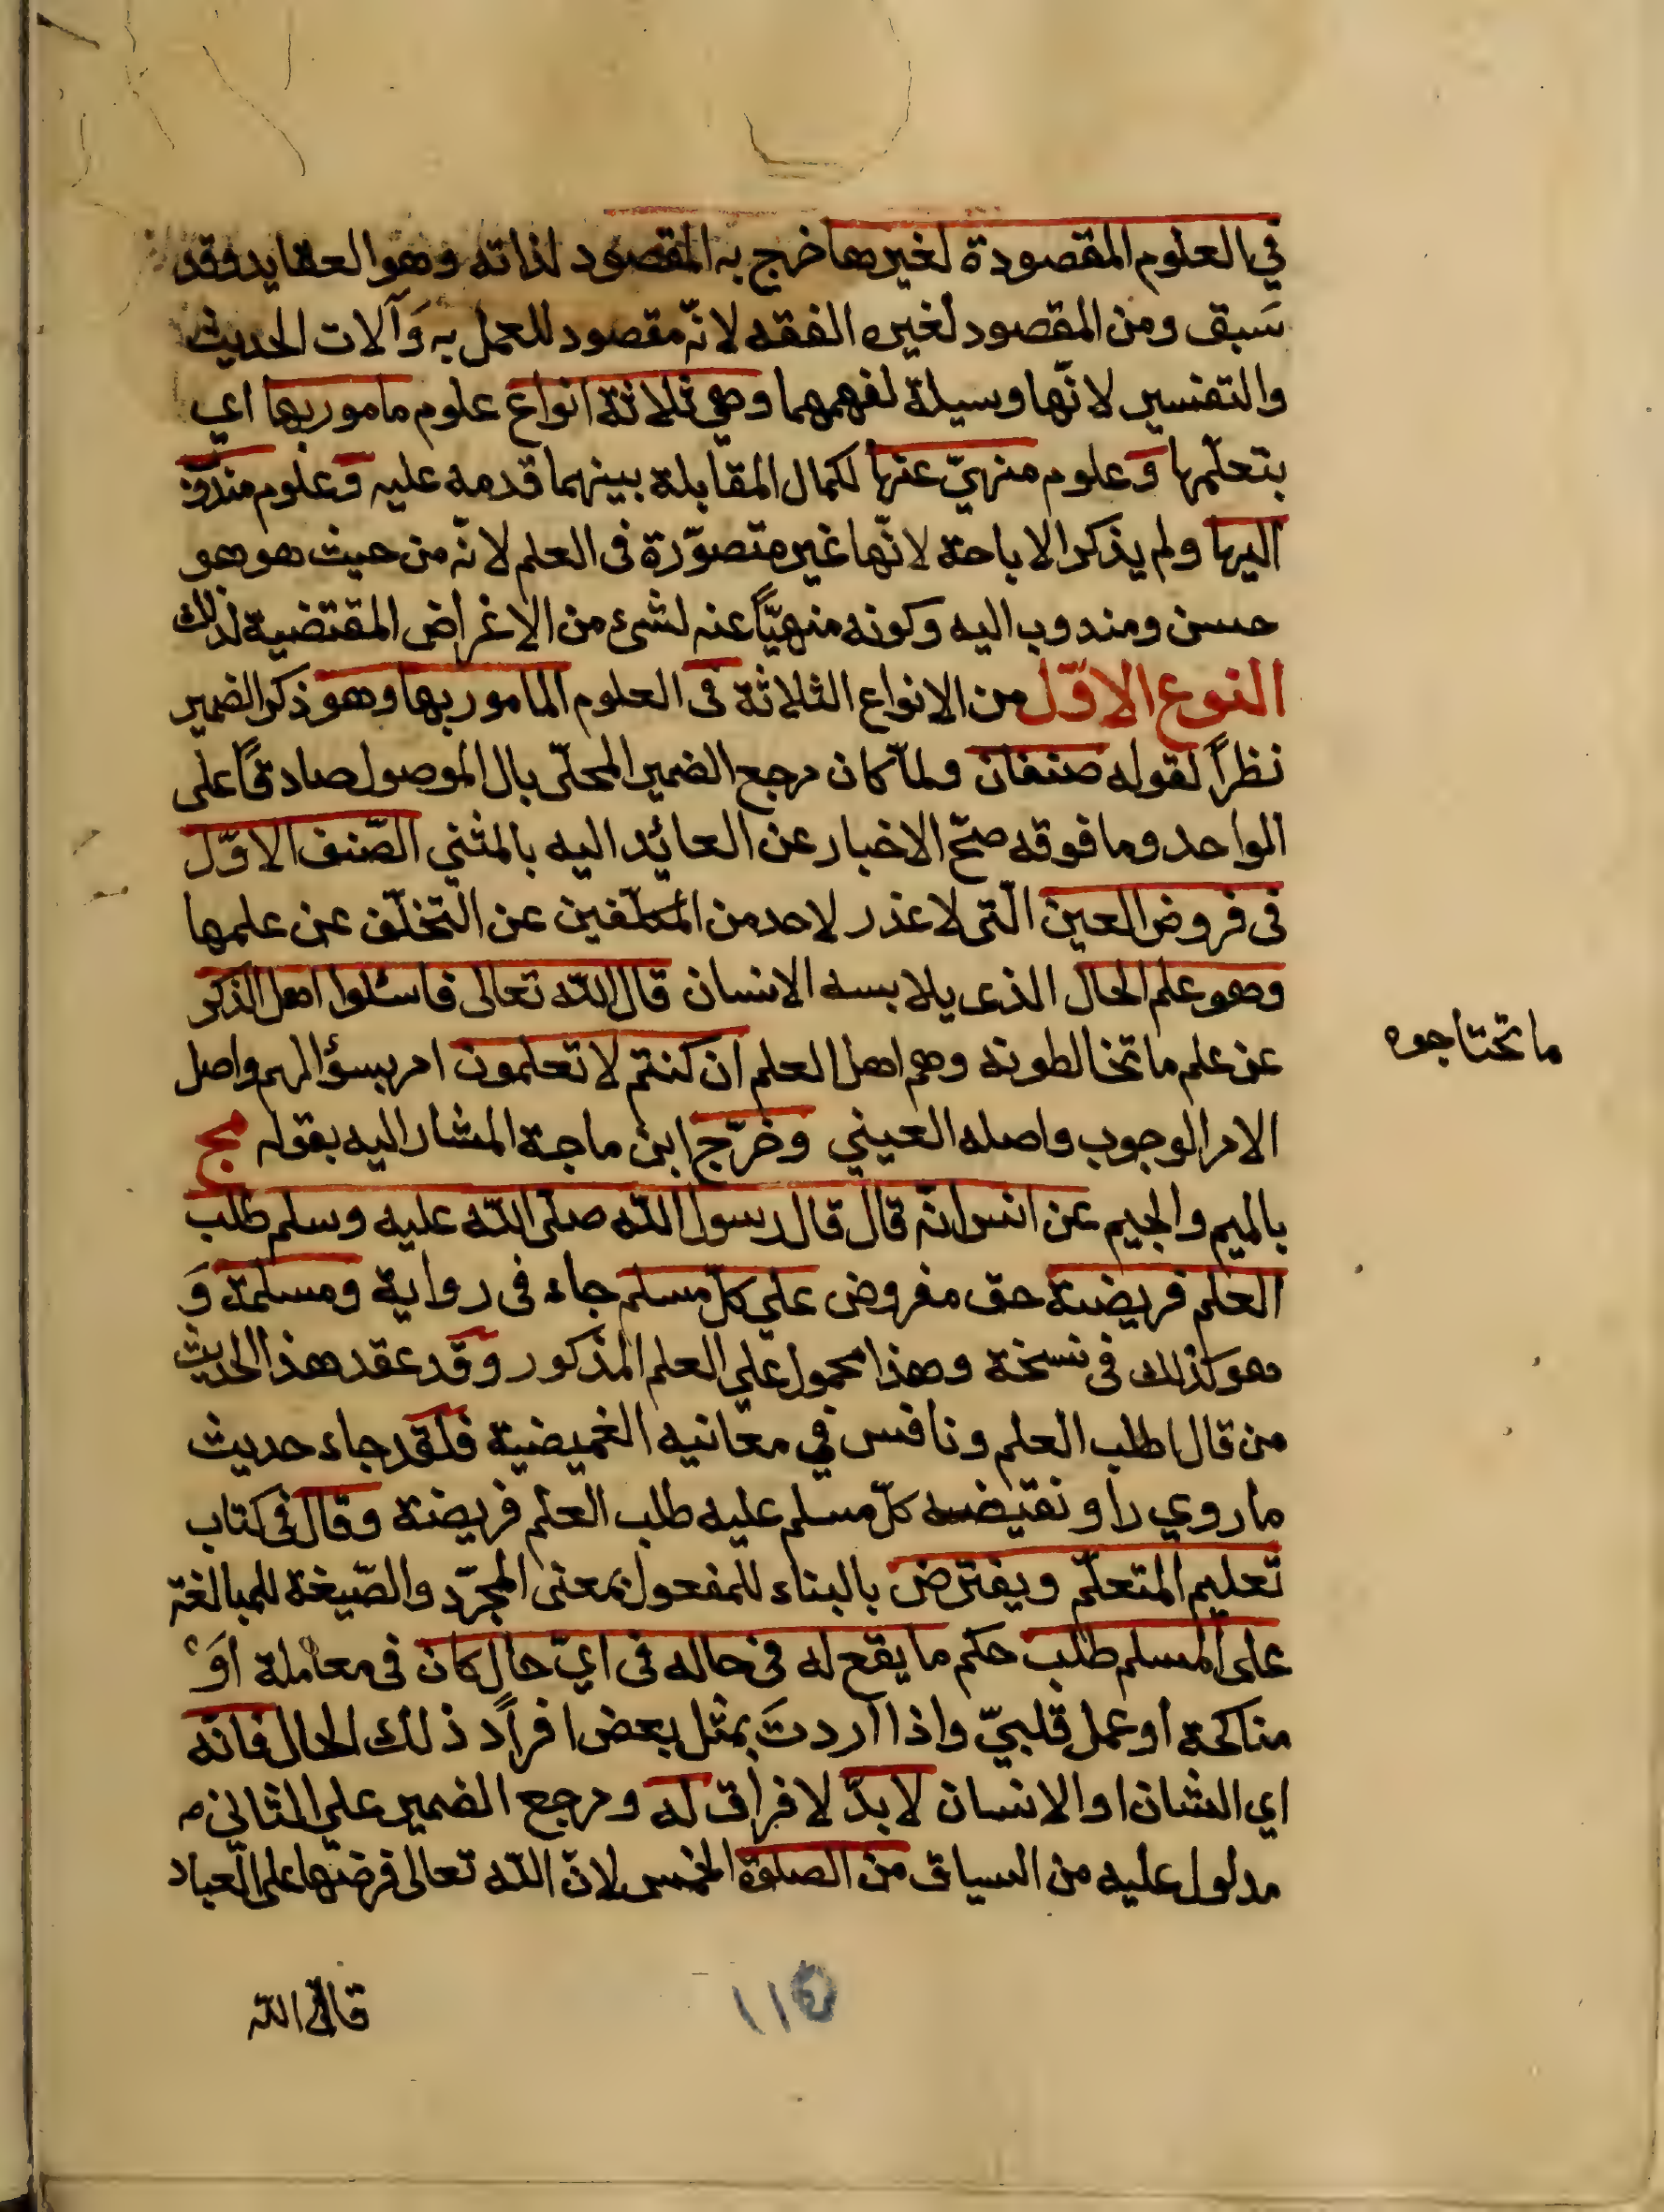 في العلوم المقصودة لغيرها خرج به المقصود لذاته وهو العقايد فقد
سَبق ومن المقصود لغيره الفقه لانّه مقصود للعمل به وَآلات الحديث
والتفسير لانّها وسيلة لفهمهما وهي ثلاثة انواع علوم مامور بها اي
بتعلّمها وَعلوم منهيّ عنها لكمال المقابلة بينهما قدمه عليه وَعلوم مندوب
اليها ولم يذكر الاباحة لانّها غير متصوّرة فى العلم لانّه من حيث هو هو
حسن ومندوب اليه وكونه منهيّاً عنه لشئ من الاغراض المقتضية لذلك
النوع الاوّل من الانواع الثلاثة فى العلوم المامور بها وهو ذكر الضمير
نظراً لقوله صنفان ولمّا كان مرجع الضمير المحلّى بال الموصول صادقًا على
الواحد وما فوقه صحّ الاخبار عن العائد اليه بالمثني الصّنف الاوّل
فى فروض العين الّتى لا عذر لاحد من المكلّفين عن التّخلّف عن علمها
وهو علم الحال الذى يلابسه الانسان قال الله تعالى فاسئلوا اهل الذكر
عن علم ما تخالطونه وهم اهل العلم ان كنتم لا تعلمون امر بسؤالهم واصل
ما تحتاجوه
الامر الوجوب واصله العيني وخرّج ابن ماجة المشار اليه بقوله مج
بالميم والجيم عن انس انّه قال قال رسول الله صلى الله عليه وسلم طلب
العلم فريضة حق مفروض على كلّ مسلم جاء فى رواية ومسلمة وَ
هو كذلك فى نسخة وهذا محمول على العلم المذكور وقد عقد هذا الحديث
من قال اطلب العلم ونافس في معانيه الغميضية فلقد جاء حديث
ما روي راو نقيضه كلّ مسلم عليه طلب العلم فريضة وقال فى كتاب
تعليم المتعلّم ويفترض بالبناء للمفعول بمعنى المجرّد والصّيغة للمبالغة
على المسلم طلب حكم ما يقع له فى حاله فى ايّ حال كان فى معاملة اوَ
مناكحة او عمل قلبيّ واذا اردتَ بمثل بعض افراد ذلك الحال فانّه
اي الشان او الانسان لابدّ لا فراق له ومرجع الضمير على الثاني
مدلول عليه من السياق من الصلوة الخمس لانّ الله تعالى فرضها على العباد
قال الله